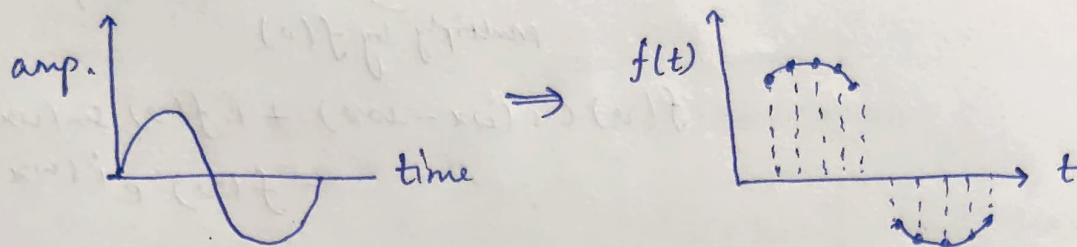 amp.
time
⇒
f(t)
t